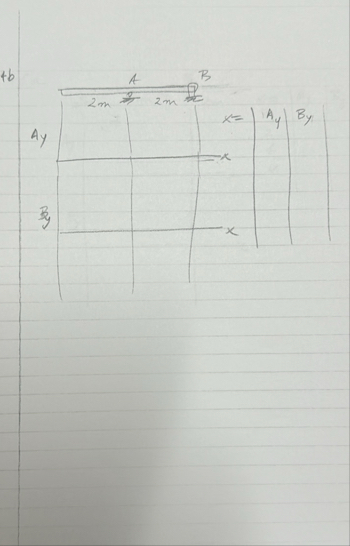 4b
A B
2m 2m
x= Ay By
Ay
x
By
x